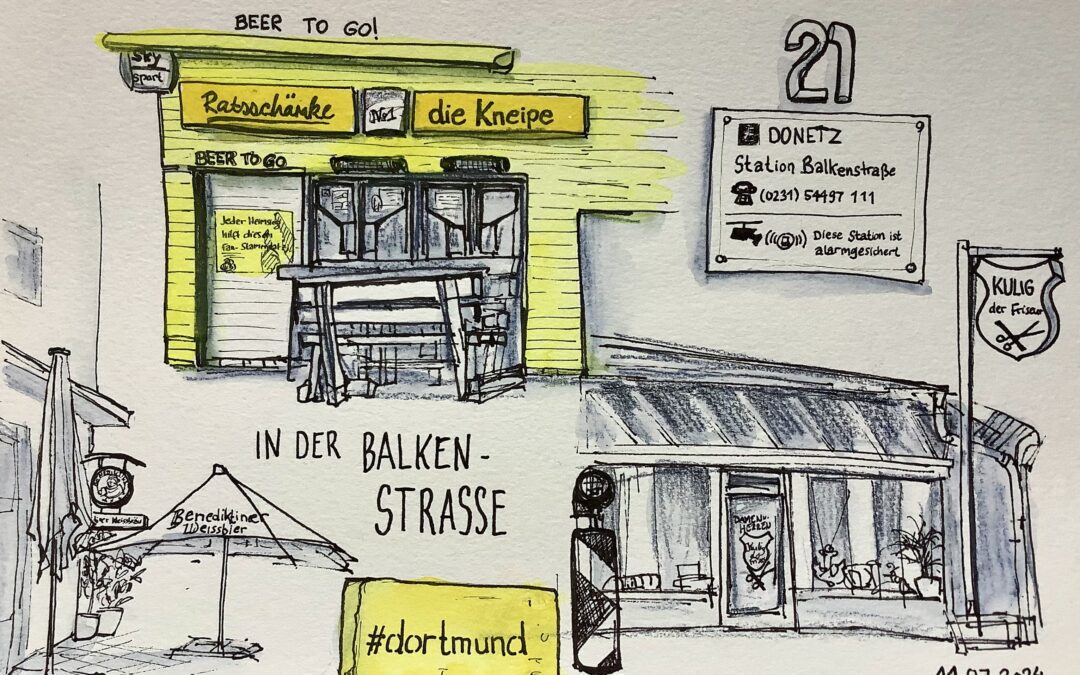 BEER TO GO!
21
sky
sport
Ratsschänke
No1
die Kneipe
DONETZ
Station Balkenstraße
(0231) 54497 111
Diese Station ist
alarmgesichert
BEER TO GO
Jeder Heimsieg
hilft diesem
Fan-Stammplatz
KULIG
der Friseur
IN DER BALKEN-
STRASSE
Benediktiner
Weissbier
DAMEN u.
HERREN
#dortmund
11.07.2024